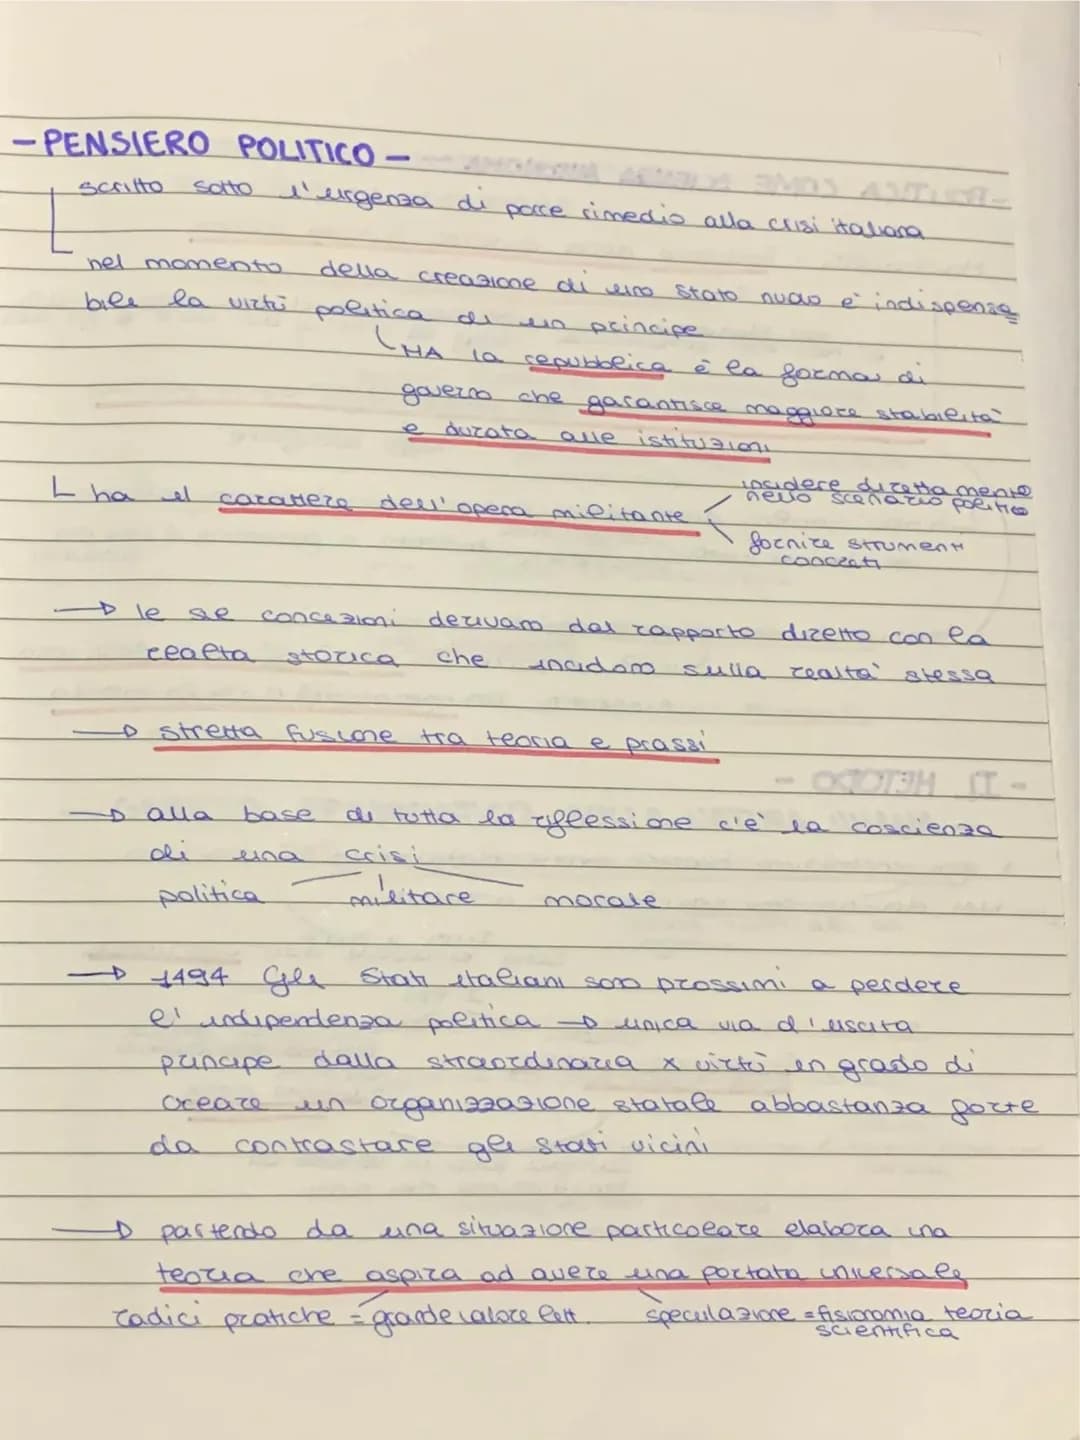 - PENSIERO POLITICO -
scritto sotto l'urgenza di porre rimedio alla crisi italiana
nel momento della creazione di uno stato nuovo è indispensa
bile la virtù politica di un principe
MA la repubblica è la forma di
governo che garantisce maggiore stabilità
e durata alle istituzioni
L ha il carattere dell'opera militante
incidere direttamente
nello scenario politico
fornire strumenti
concreti
→ le sue concezioni derivano dal rapporto diretto con la
realtà storica che incidono sulla realtà stessa
→ stretta fusione tra teoria e prassi
→ alla base di tutta la riflessione c'è la coscienza
di una crisi
politica militare morale
→ 1494 Gli Stati italiani sono prossimi a perdere
l'indipendenza politica → unica via d'uscita
principe dalla straordinaria x virtù in grado di
creare un organizzazione statale abbastanza forte
da contrastare gli stati vicini
→ partendo da una situazione particolare elabora una
teoria che aspira ad avere una portata universale
radici pratiche = grande valore lett. speculazione = fisionomia teoria
scientifica
- POLITICA COME SCIENZA AUTONOMA -
- IL METODO -